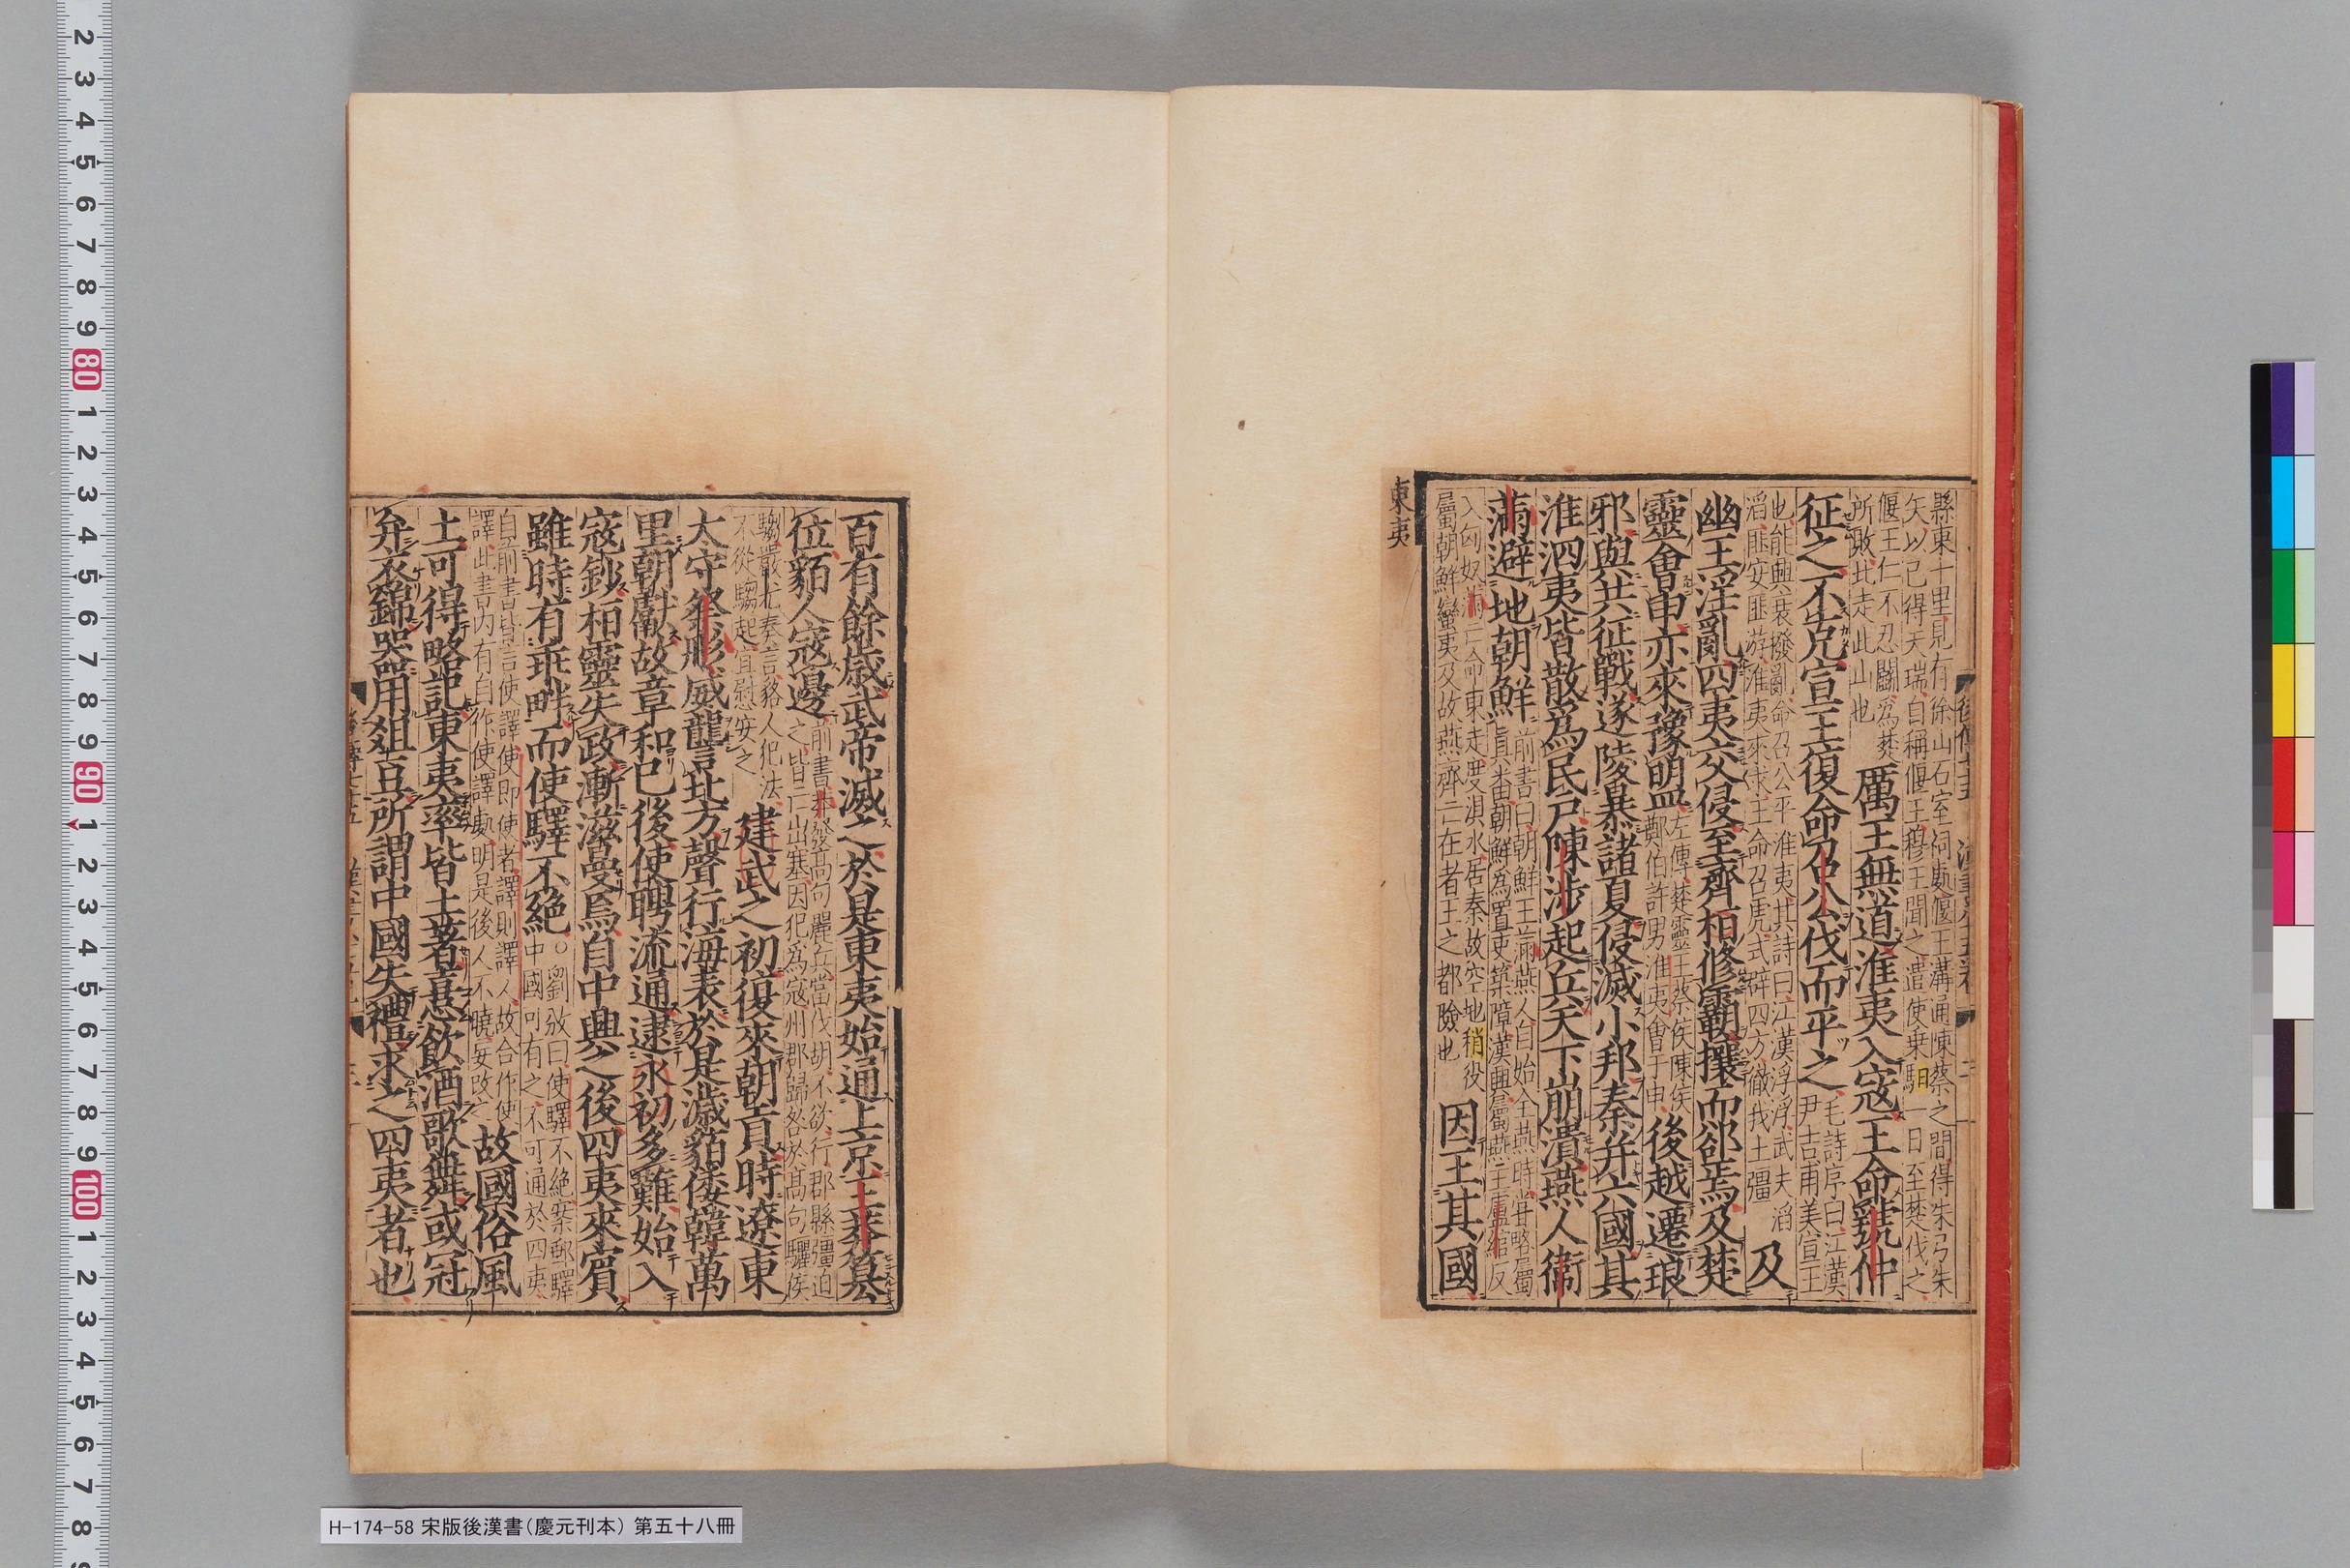 縣東十里見有徐山石室祠處偃王溝通陳蔡之間得朱弓朱
矢以己得天瑞自稱偃王穆王聞之遣使乗馹一日至楚伐之
偃王仁不忍鬬為楚
所敗北走此山也
厲王無道淮夷入寇王命虢仲
征之不克宣王復命召公伐而平之
毛詩序曰江漢
尹吉甫美宣王
也能興衰撥亂命召公平淮夷其詩曰江漢浮浮武夫滔
滔匪安匪游淮夷來求王命召虎式辟四方徹我土疆
及
幽王淫亂四夷交侵至齊桓修霸攘而郤焉及楚
靈會申亦來豫盟
左傳楚靈王蔡侯陳侯
鄭伯許男淮夷會于申
後越遷琅
邪與共征戰遂陵暴諸夏侵滅小邦秦并六國其
淮泗夷皆散為民戶陳涉起兵天下崩潰燕人衛
滿避地朝鮮
前書曰朝鮮王滿燕人自始全燕時甞略屬
眞番朝鮮為置吏築障漢興屬燕王盧綰反
入匈奴滿亡命東走度浿水居秦故空地稍役
屬朝鮮蠻夷及故燕齊亡在者王之都險也
因王其國
東夷
百有餘歲武帝滅之於是東夷始通上京王莽篡
位貊人寇邊
前書莽發高句驪兵當伐胡不欲行郡縣彊迫
之皆亡出塞因犯為寇州郡歸咎於高句驪侯
騶嚴尤奏言貉人犯法
不從騶起宜慰安之
建武之初復來朝貢時遼東
太守祭肜威讋北方聲行海表於是濊貊倭韓萬
里朝獻故章和已後使聘流通逮永初多難始入
寇鈔桓靈失政漸滋曼焉自中興之後四夷來賓
雖時有乖畔而使驛不絕
○劉攽曰使驛不絕案郵驛
中國可有之不可通於四夷
自前書皆言使譯使即使者譯則譯人故合作使
譯此書内有自作使譯處明是後人不曉妄改
故國俗風
土可得略記東夷率皆土著憙飲酒歌舞或冠
弁衣錦器用俎豆所謂中國失禮求之四夷者也
H-174-58 宋版後漢書（慶元刊本） 第五十八冊